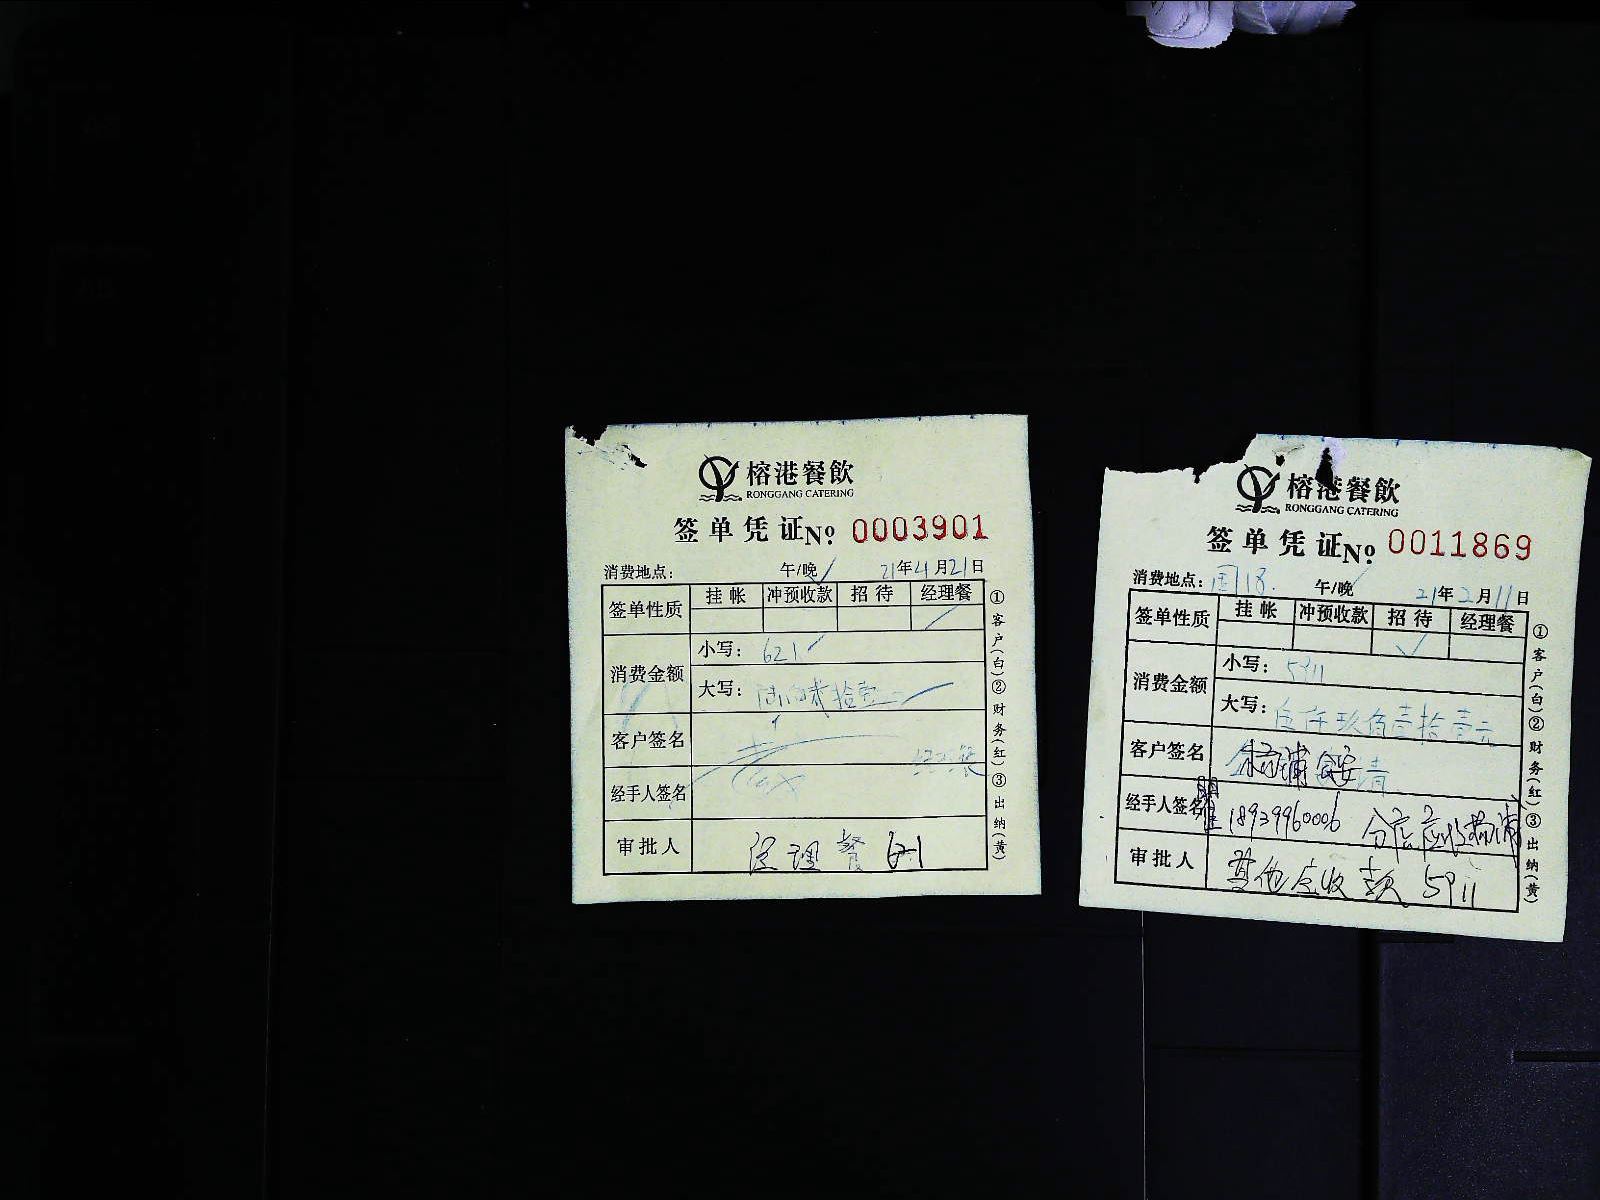 榕港餐飲
RONGGANG CATERING
签单凭证 № 0003901
消费地点: 午/晚✓ 21年4月21日
签单性质 挂帐 冲预收款 招待 经理餐
✓
消费金额 小写: 621
大写: 陆佰贰拾壹
客户签名
经手人签名
审批人 经理餐 621
①客户(白)②财务(红)③出纳(黄)
榕港餐飲
RONGGANG CATERING
签单凭证 № 0011869
消费地点: 国18. 午/晚 21年2月11日
签单性质 挂帐 冲预收款 招待 经理餐
✓
消费金额 小写: 5911
大写: 伍仟玖佰壹拾壹元
客户签名
经手人签名 18939960006 分店应收
审批人 其他应收款 5911
①客户(白)②财务(红)③出纳(黄)